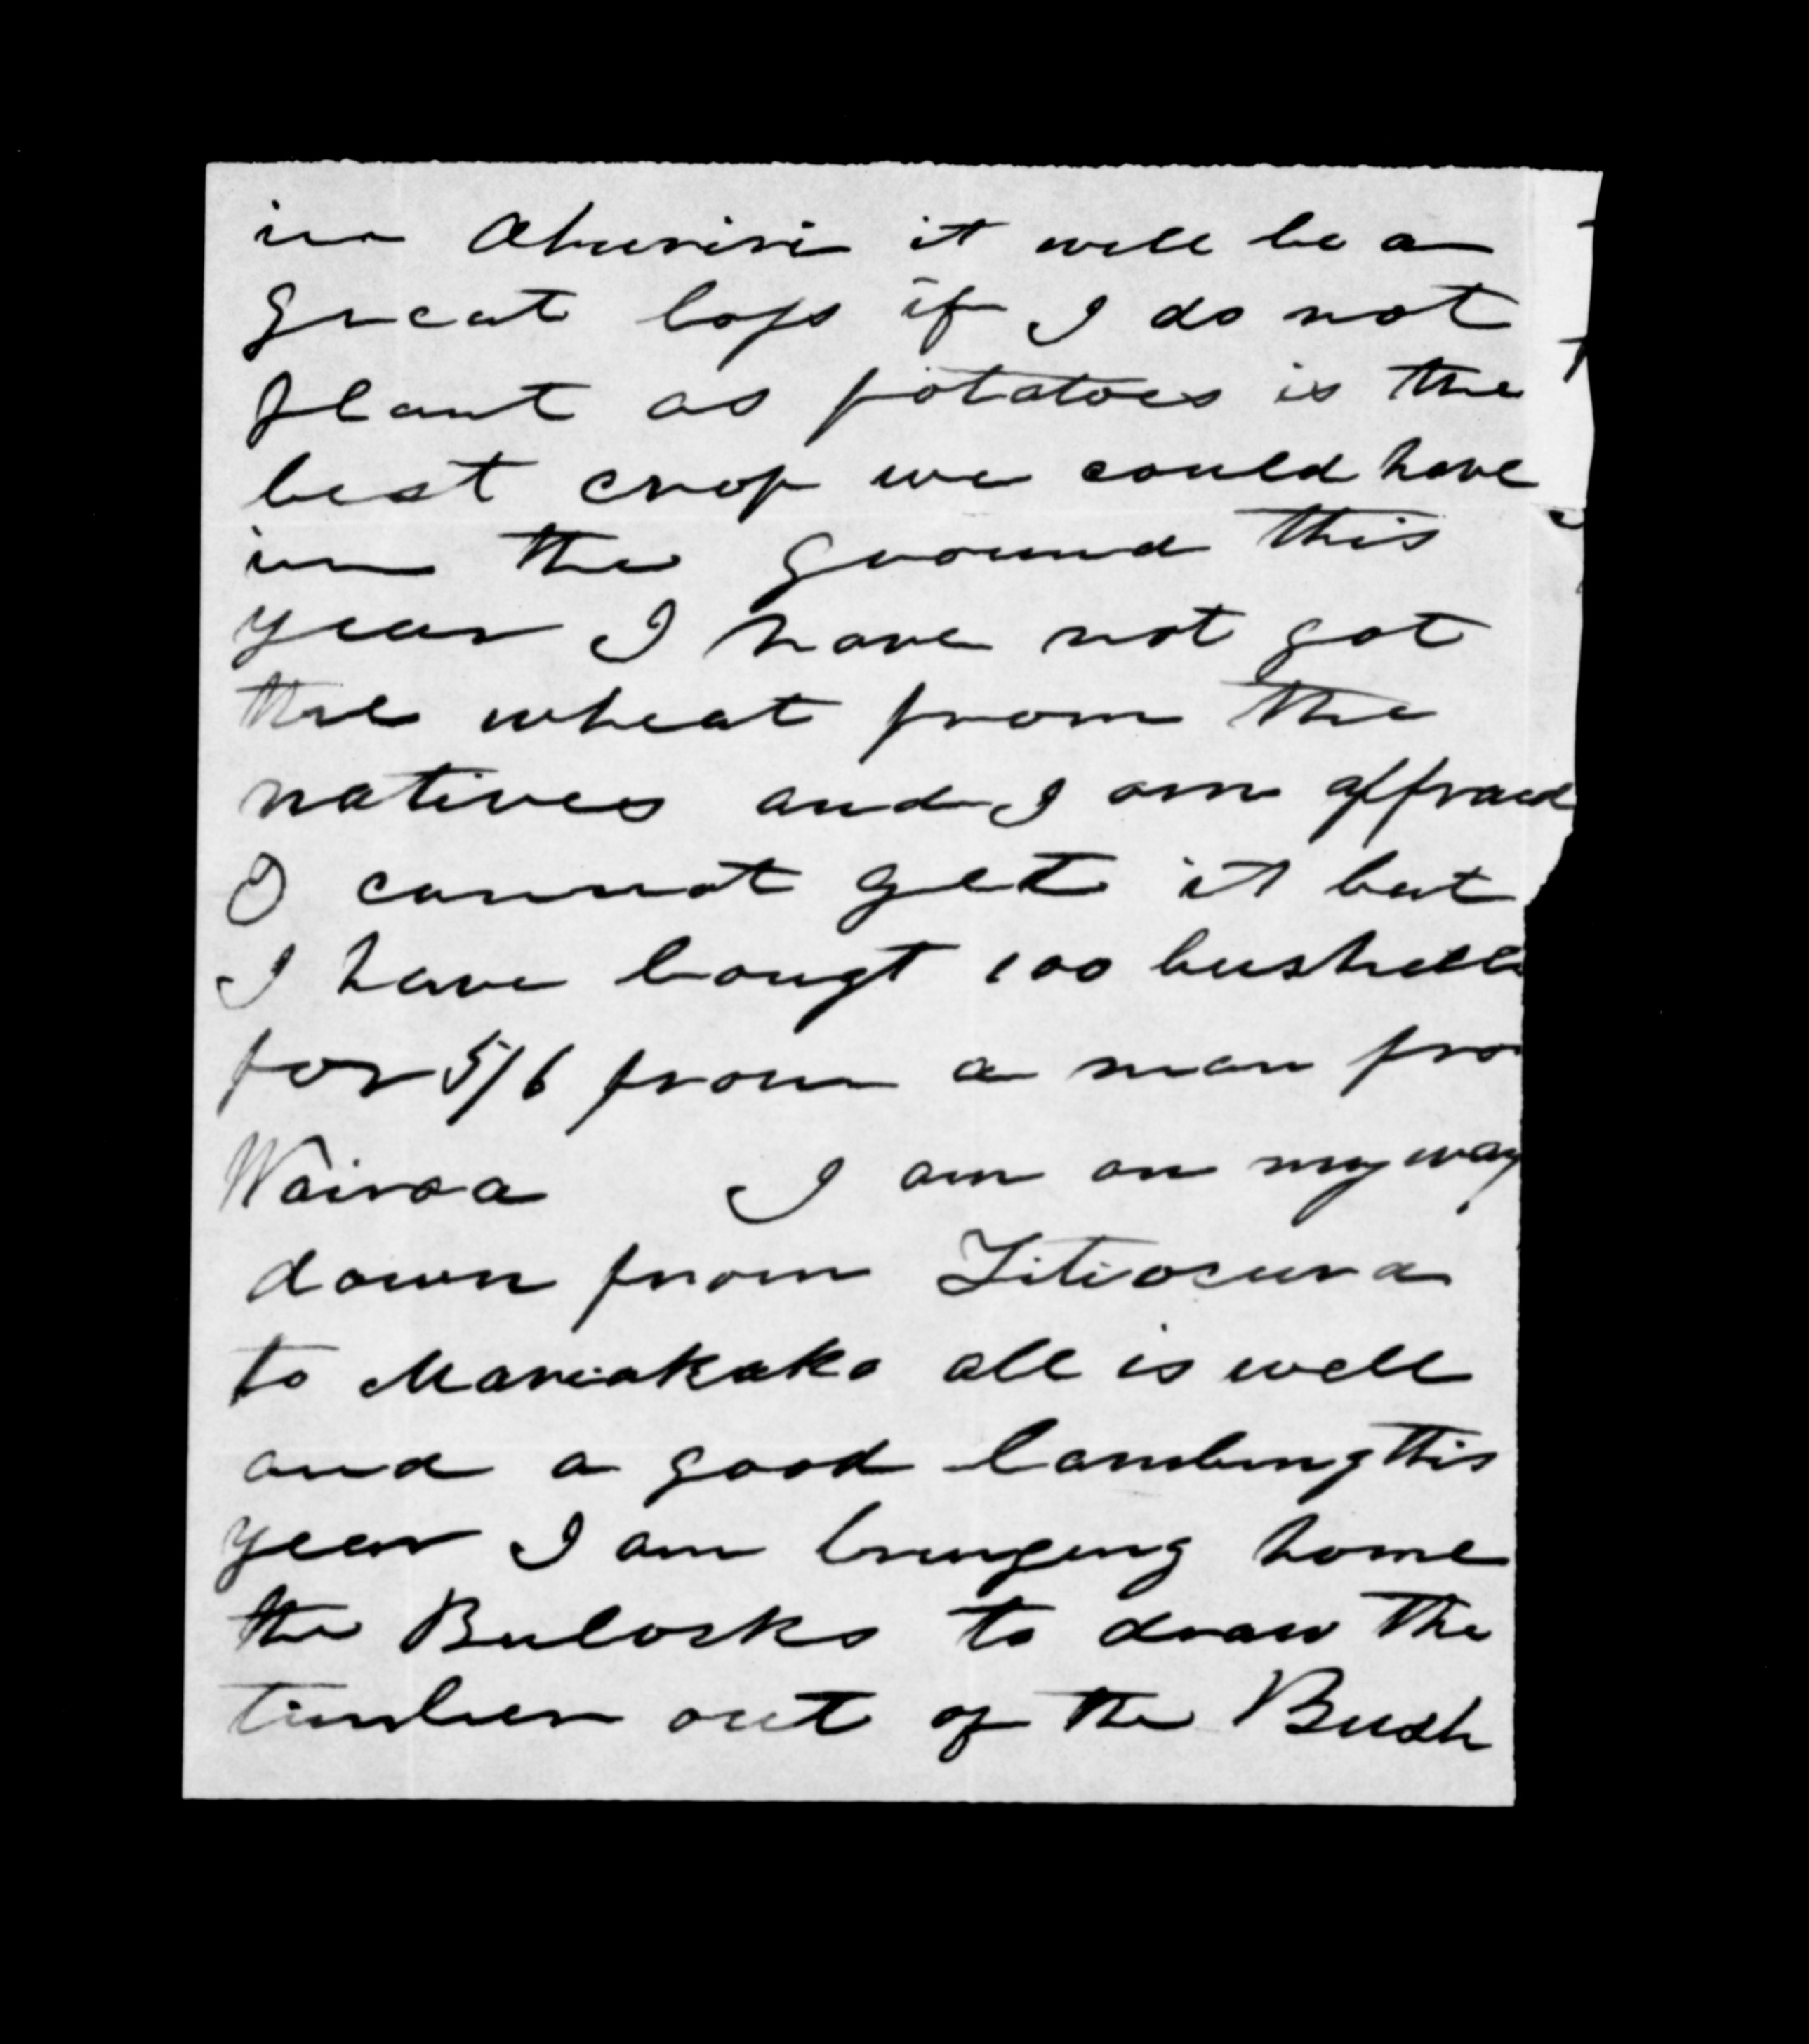 in Ahuriri it will be a
great loss if I do not
plant as potatoes is the
best crop we could have
in the ground this
year I have not got
the wheat from the
natives and I am affraid
I cannot get it but
I have bougt 100 bushells
for 5/6 from a man fro
Wairoa I am on my way
down from Titiocura
to Mariakaka all is well
and a good lambing this
year I am bringing home
the Bulocks to draw the
timber out of the Bush